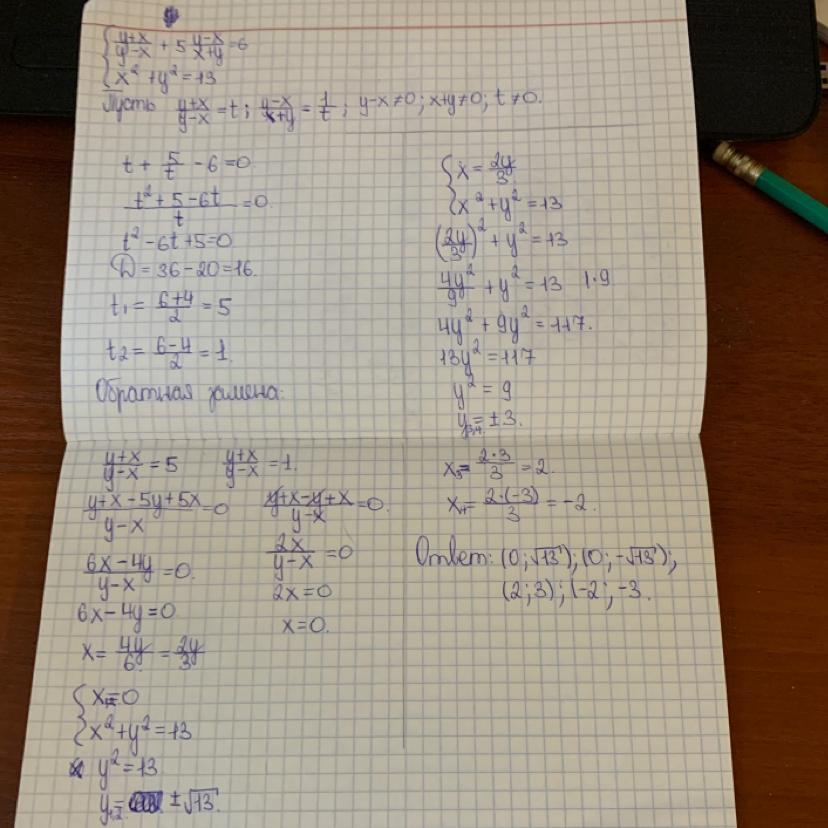 { (y+x)/(y-x) + 5 (y-x)/(x+y) = 6
{ x² + y² = 13
Пусть (y+x)/(y-x) = t; (y-x)/(x+y) = 1/t; y-x≠0; x+y≠0; t≠0.
t + 5/t - 6 = 0
(t² + 5 - 6t)/t = 0
t² - 6t + 5 = 0
D = 36 - 20 = 16.
t₁ = (6+4)/2 = 5
t₂ = (6-4)/2 = 1.
Обратная замена:
(y+x)/(y-x) = 5 (y+x)/(y-x) = 1.
(y+x-5y+5x)/(y-x) = 0 (y+x-y+x)/(y-x) = 0.
(6x-4y)/(y-x) = 0. 2x/(y-x) = 0
6x - 4y = 0 2x = 0
x = 4y/6 = 2y/3 x = 0.
{ x = 0
{ x² + y² = 13
y² = 13
y₁,₂ = ± √13
{ x = 2y/3
{ x² + y² = 13
(2y/3)² + y² = 13
4y²/9 + y² = 13 | · 9
4y² + 9y² = 117.
13y² = 117
y² = 9
y₃,₄ = ± 3.
x₃ = (2·3)/3 = 2.
x₄ = (2·(-3))/3 = -2.
Ответ: (0; √13); (0; -√13);
(2; 3); (-2; -3.